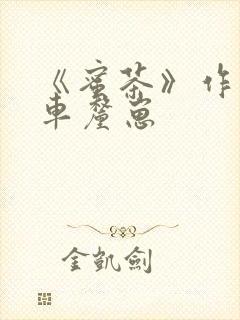 《蜜茶》作
車釐崽
金凱劍